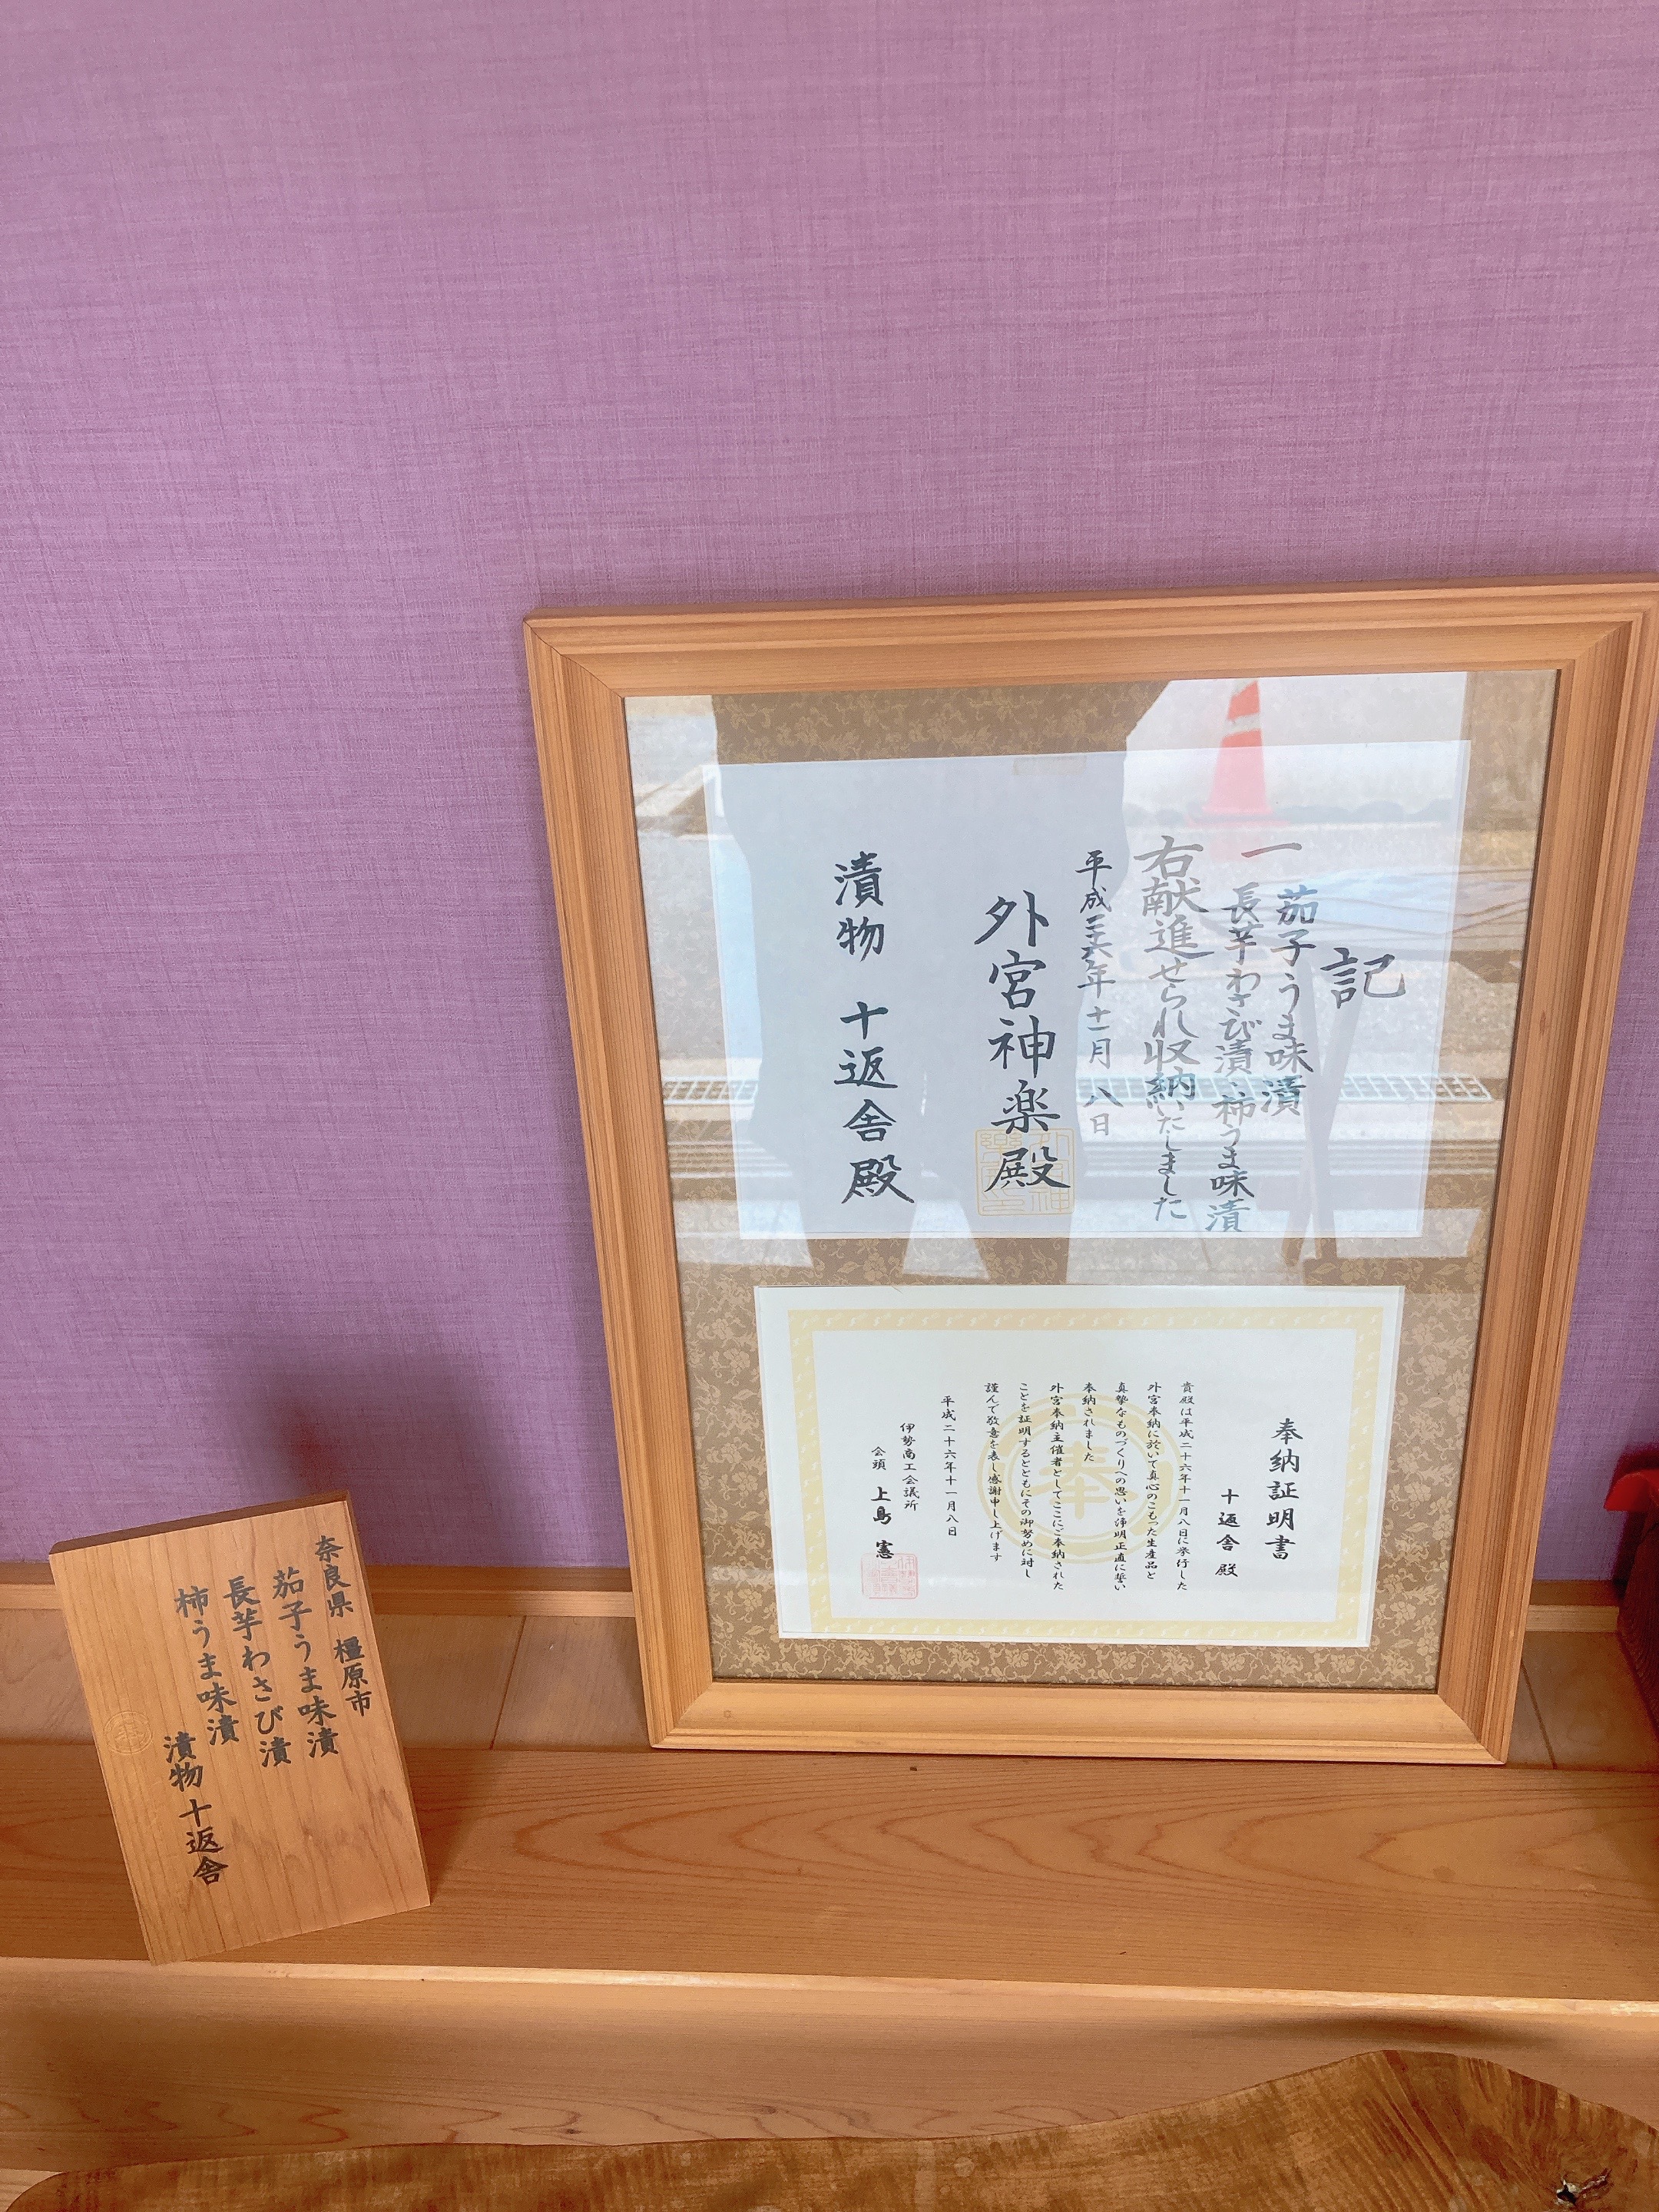 記
一 茄子うま味漬
長芋わさび漬 柿うま味漬
右献進せられ収納いたしました
平成二十六年十一月八日
外宮神楽殿
漬物 十返舎殿
奉納証明書
十返舎殿
貴殿は平成二十六年十一月八日に挙行した
外宮奉納に於いて真心のこもった生産品と
真摯なものづくりへの思いを浄明正直に誓い
奉納されました
外宮奉納主催者としてここにご奉納された
ことを証明するとともにその御努めに対し
謹んで敬意を表し感謝申し上げます
平成二十六年十一月八日
伊勢商工会議所
会頭 上島 憲
奈良県 橿原市
茄子うま味漬
長芋わさび漬
柿うま味漬
漬物 十返舎
奉